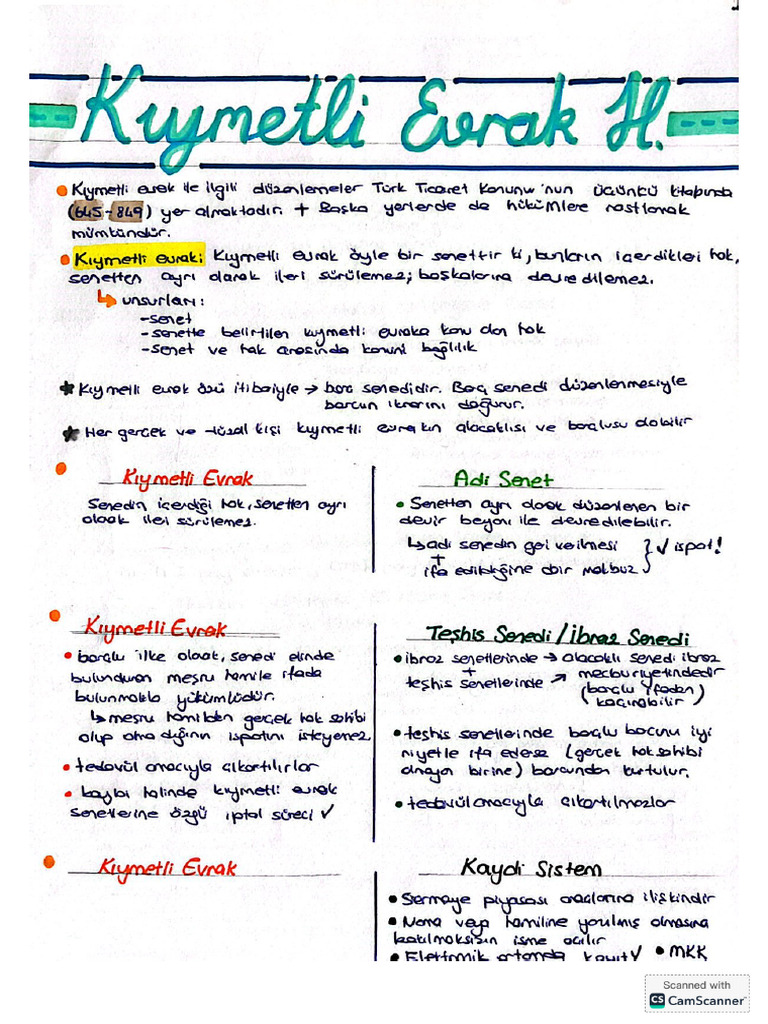 Kıymetli Evrak H.
Kıymetli evrak ile ilgili düzenlemeler Türk Ticaret Kanunu'nun üçüncü kitabında
(645-849) yer almaktadır. + Başka yerlerde de hükümlere rastlamak
mümkündür.
Kıymetli evrak: Kıymetli evrak öyle bir senettir ki, bunların içerdikleri hak,
senetten ayrı olarak ileri sürülemez; başkalarına devredilemez.
↳ unsurları:
-senet
-senette belirtilen kıymetli evraka konu olan hak
-senet ve hak arasında konuni bağlılık
★ Kıymetli evrak özü itibariyle → borç senedidir. Borç senedi düzenlenmesiyle
borcun ikrarını doğurur.
★ Her gerçek ve tüzel kişi kıymetli evrakın alacaklısı ve borçlusu olabilir
Kıymetli Evrak
Senedin içerdiği hak, senetten ayrı
olarak ileri sürülemez.
Adi Senet
• Senetten ayrı olarak düzenlenen bir
devir beyanı ile devredilebilir.
↳ adi senedin geri verilmesi
+
ifa edildiğine dair makbuz
} ✓ ispat!
Kıymetli Evrak
• borçlu ilke olarak, senedi elinde
bulunduran meşru hamile ifada
bulunmakla yükümlüdür.
↳ meşru hamilden gerçek hak sahibi
olup olmadığının ispatını isteyemez
• tedavül amacıyla çıkartılırlar
• kaybı halinde kıymetli evrak
senetlerine özgü iptal süreci ✓
Teşhis Senedi / İbraz Senedi
• ibraz senetlerinde → alacaklı senedi ibraz
+ mecburiyetindedir
teşhis senetlerinde ↗ (borçlu ifadan)
(kaçınabilir)
• teşhis senetlerinde borçlu borcunu iyi
niyetle ifa ederse (gerçek hak sahibi
olmayan birine) borcundan kurtulur.
• tedavül amacıyla çıkartılmazlar
Kıymetli Evrak
Kaydi Sistem
• Sermaye piyasası araçlarına ilişkindir
• Nama veya hamiline yazılmış olmasına
bakılmaksısın isme açılır
• Elektronik ortamda kayıt ✓ • MKK
Scanned with
CS CamScanner